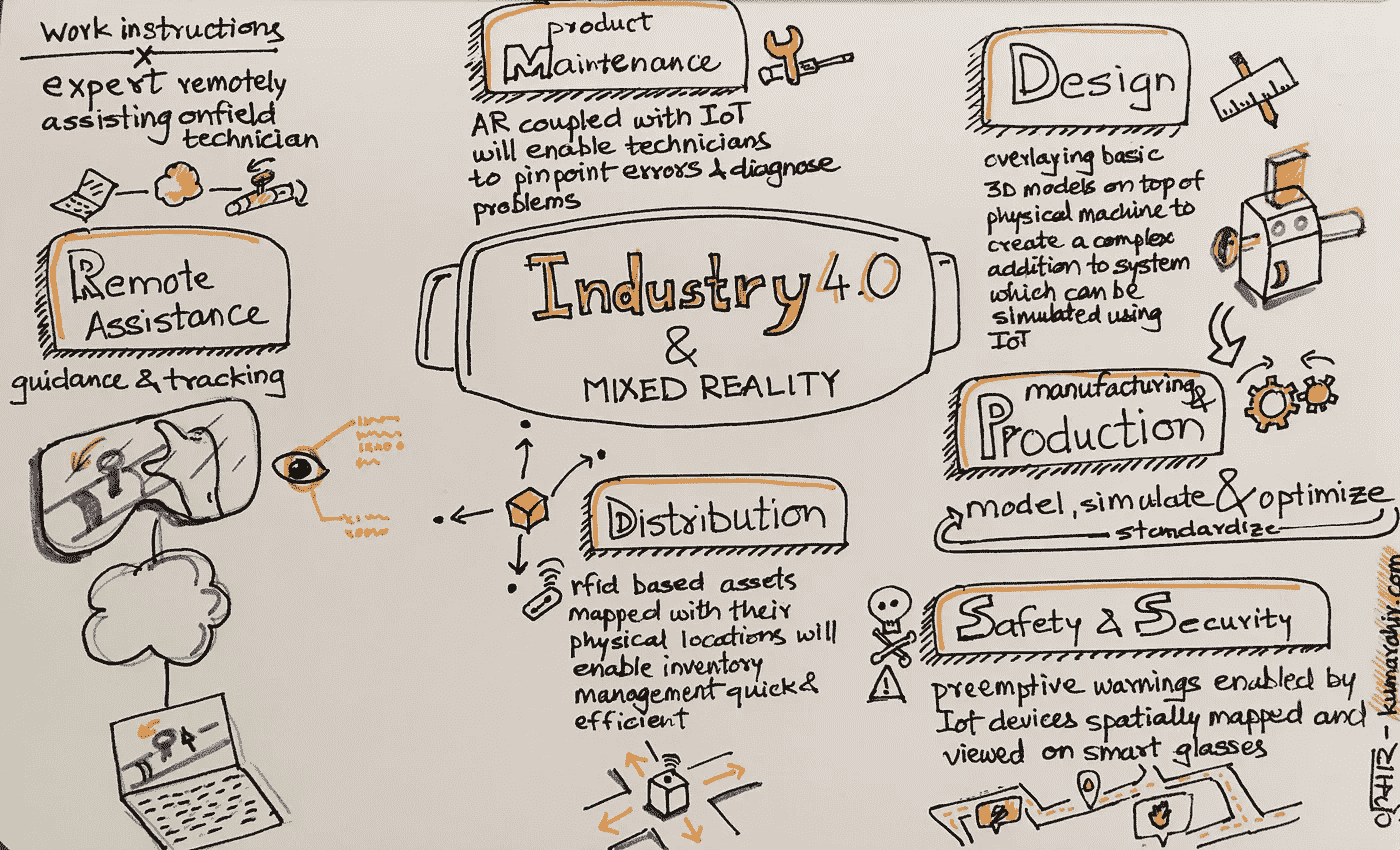 Work instructions
expert remotely
assisting onfield
technician
Remote
Assistance
guidance & tracking
product
Maintenance
AR coupled with IoT
will enable technicians
to pinpoint errors & diagnose
problems
Industry 4.0
&
MIXED REALITY
Distribution
rfid based assets
mapped with their
physical locations will
enable inventory
management quick &
efficient
Design
overlaying basic
3D models on top of
physical machine to
create a complex
addition to system
which can be
simulated using
IoT
manufacturing &
Production
model, simulate & optimize
standardize
Safety & Security
preemptive warnings enabled by
Iot devices spatially mapped and
viewed on smart glasses
kumarahir.com